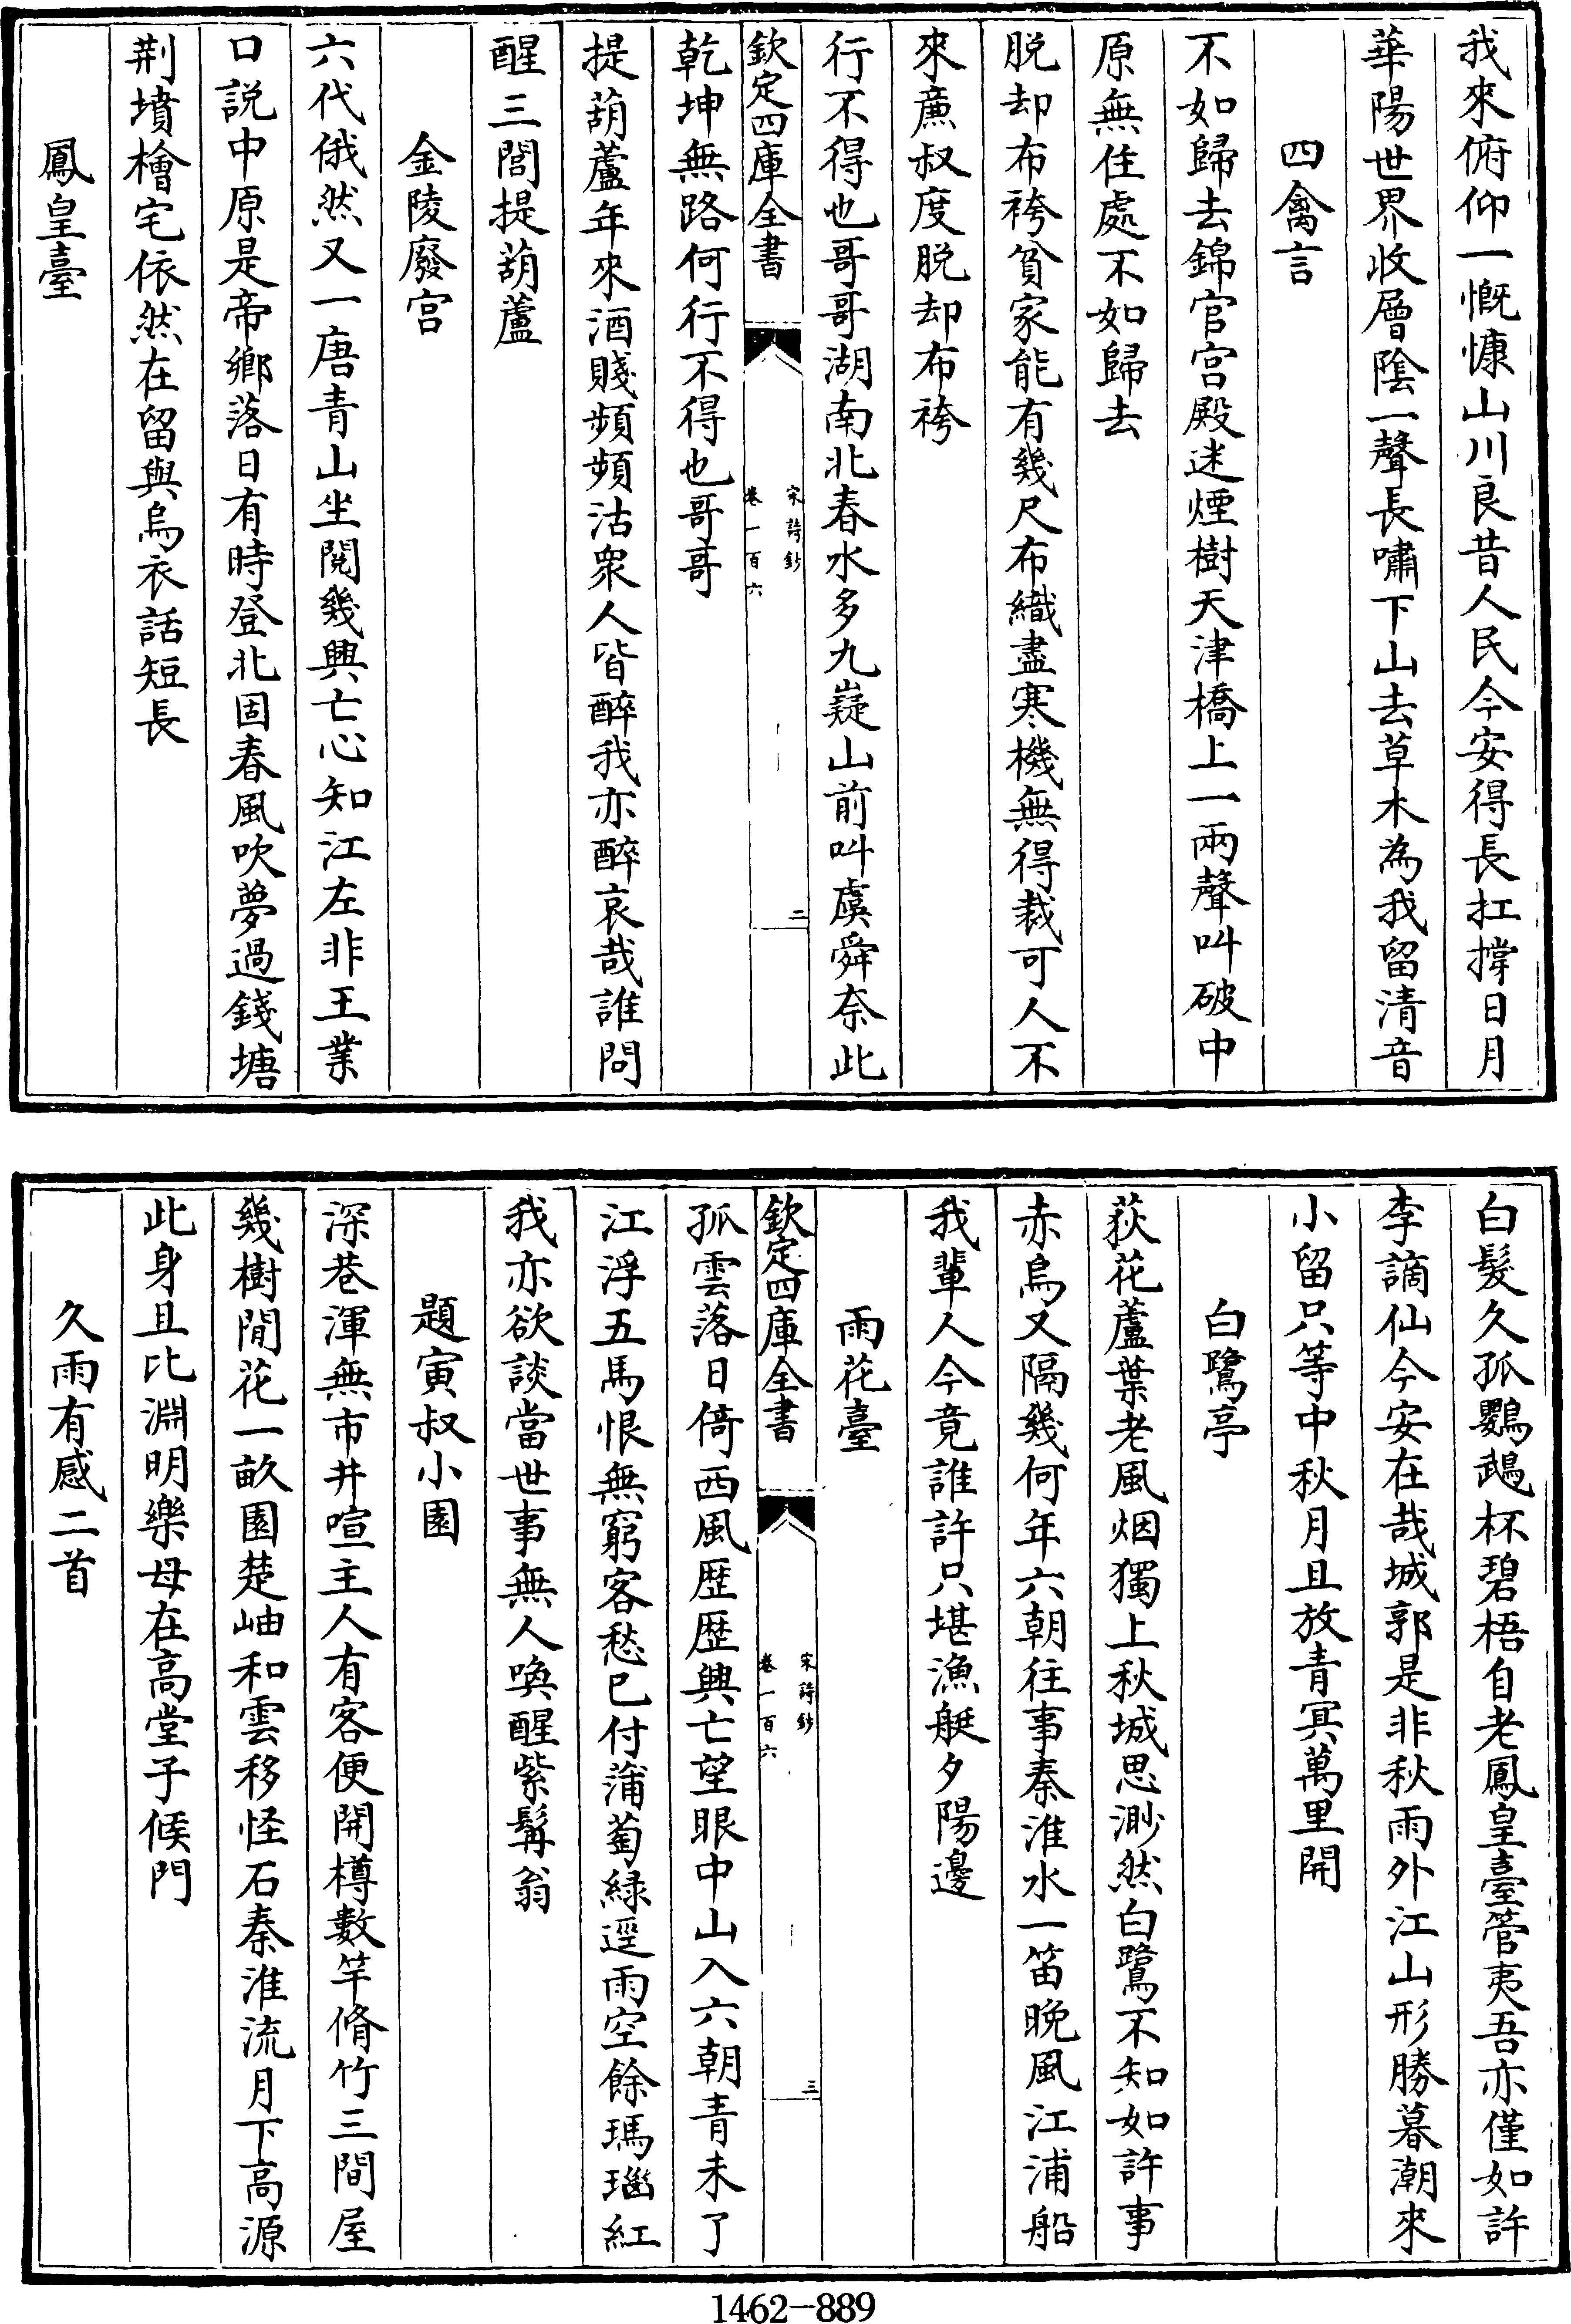 我來俯仰一慨慷山川良昔人民今安得長扛撐日月
華陽世界收層隂一聲長嘯下山去草木為我留清音
四禽言
不如歸去錦官宫殿迷煙樹天津橋上一兩聲叫破中
原無住處不如歸去
脱却布袴貧家能有幾尺布織盡寒機無得裁可人不
來亷叔度脱却布袴
行不得也哥哥湖南北春水多九嶷山前叫虞舜奈此
欽定四庫全書
宋詩鈔
卷一百六
二
乾坤無路何行不得也哥哥
提葫蘆年來酒賤頻頻沽衆人皆醉我亦醉哀哉誰問
醒三閭提葫蘆
金陵廢宫
六代俄然又一唐青山坐閲幾興亡心知江左非王業
口説中原是帝鄉落日有時登北固春風吹夢過錢塘
荆墳檜宅依然在留與烏衣話短長
鳳皇臺
白髮久孤鸚鵡杯碧梧自老鳳皇臺管夷吾亦僅如許
李謫仙今安在哉城郭是非秋雨外江山形勝暮潮來
小留只等中秋月且放青冥萬里開
白鷺亭
荻花蘆葉老風烟獨上秋城思渺然白鷺不知如許事
赤烏又隔幾何年六朝往事秦淮水一笛晚風江浦船
我輩人今竟誰許只堪漁艇夕陽邊
雨花臺
欽定四庫全書
宋詩鈔
卷一百六
三
孤雲落日倚西風歴歴興亡望眼中山入六朝青未了
江浮五馬恨無窮客愁已付蒲萄緑逕雨空餘瑪瑙紅
我亦欲談當世事無人喚醒紫髯翁
題寅叔小園
深巷渾無市井喧主人有客便開樽數竿脩竹三間屋
幾樹閒花一畝園楚岫和雲移怪石秦淮流月下高源
此身且比淵明樂母在高堂子候門
久雨有感二首
1462-889